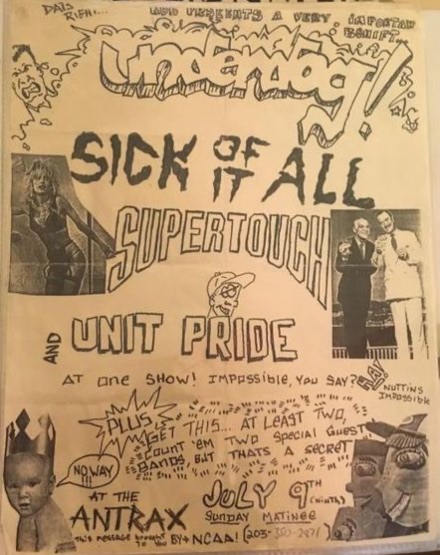 PRESENTS A VERY IMPORTANT
underdog!
SICK OF IT ALL
SUPERTOUCH
AND UNIT PRIDE
AT one SHOW! IMPOSSIBLE, YOU SAY?
HA!
NUTTINS IMPOSSIBLE
PLUS
GET THIS... AT LEAST TWO,
Count 'em TWO Special Guest
BANDS BUT THATS A SECRET
NO WAY
AT THE
ANTRAX
JULY 9TH (NINTH)
SUNDAY MATINEE
THIS MESSAGE brought TO YOU BY → NCAA! (203-